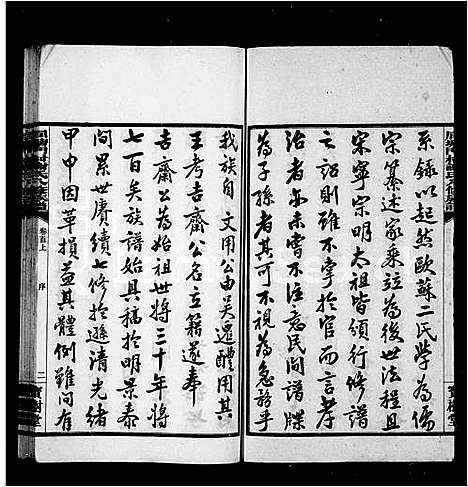 系錄以起然歐蘇二氏學為儒
宗纂述家乘竝為後世法程且
宋寧宗明太祖皆頒行修譜
之詔則雖不掌於官而言孝
治者亦未嘗不注意民間譜牒
為子孫者其可不視為急務乎
我族自文用公由吳遷醴用其
王考吉齋公名立籍遂奉
吉齋公為始祖世將三十年將
七百矣族譜始具稿於明景泰
間累世賡續七修於遜清光緒
甲申因革損益其體例雖間有
卷首上
序
二
寶樹堂